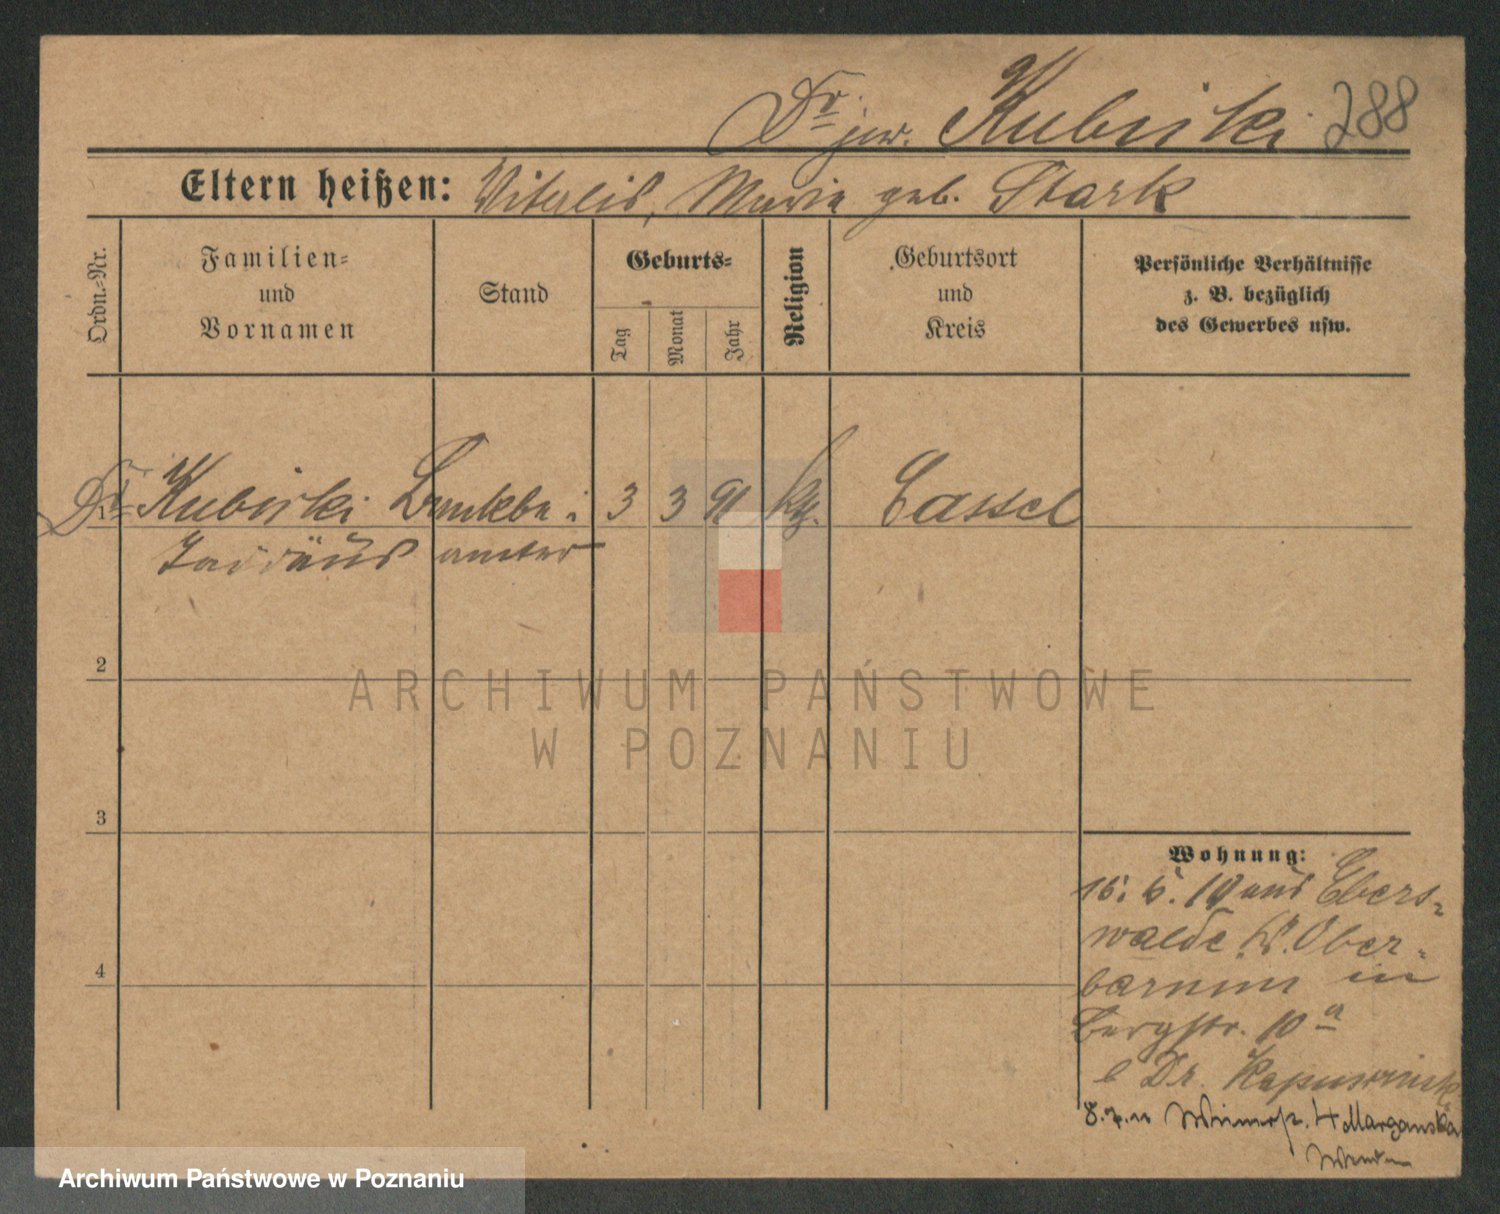 Dr. jur. Kubicki 288
Eltern heißen: Vitalis, Marie geb. Stark
Ordn.-Nr.
Familien- und Vornamen
Stand
Geburts-
Tag
Monat
Jahr
Religion
Geburtsort und Kreis
Persönliche Verhältnisse z. B. bezüglich des Gewerbes usw.
Dr. Kubicki Bankbe- 3 3 91 kg. Cassel
Taddäus amter
2
3
4
Wohnung:
aus Ebers-
walde, K. Ober-
barnim in
Bergstr. 10 a
b Dr.
ARCHIWUM PAŃSTWOWE
W POZNANIU
Archiwum Państwowe w Poznaniu